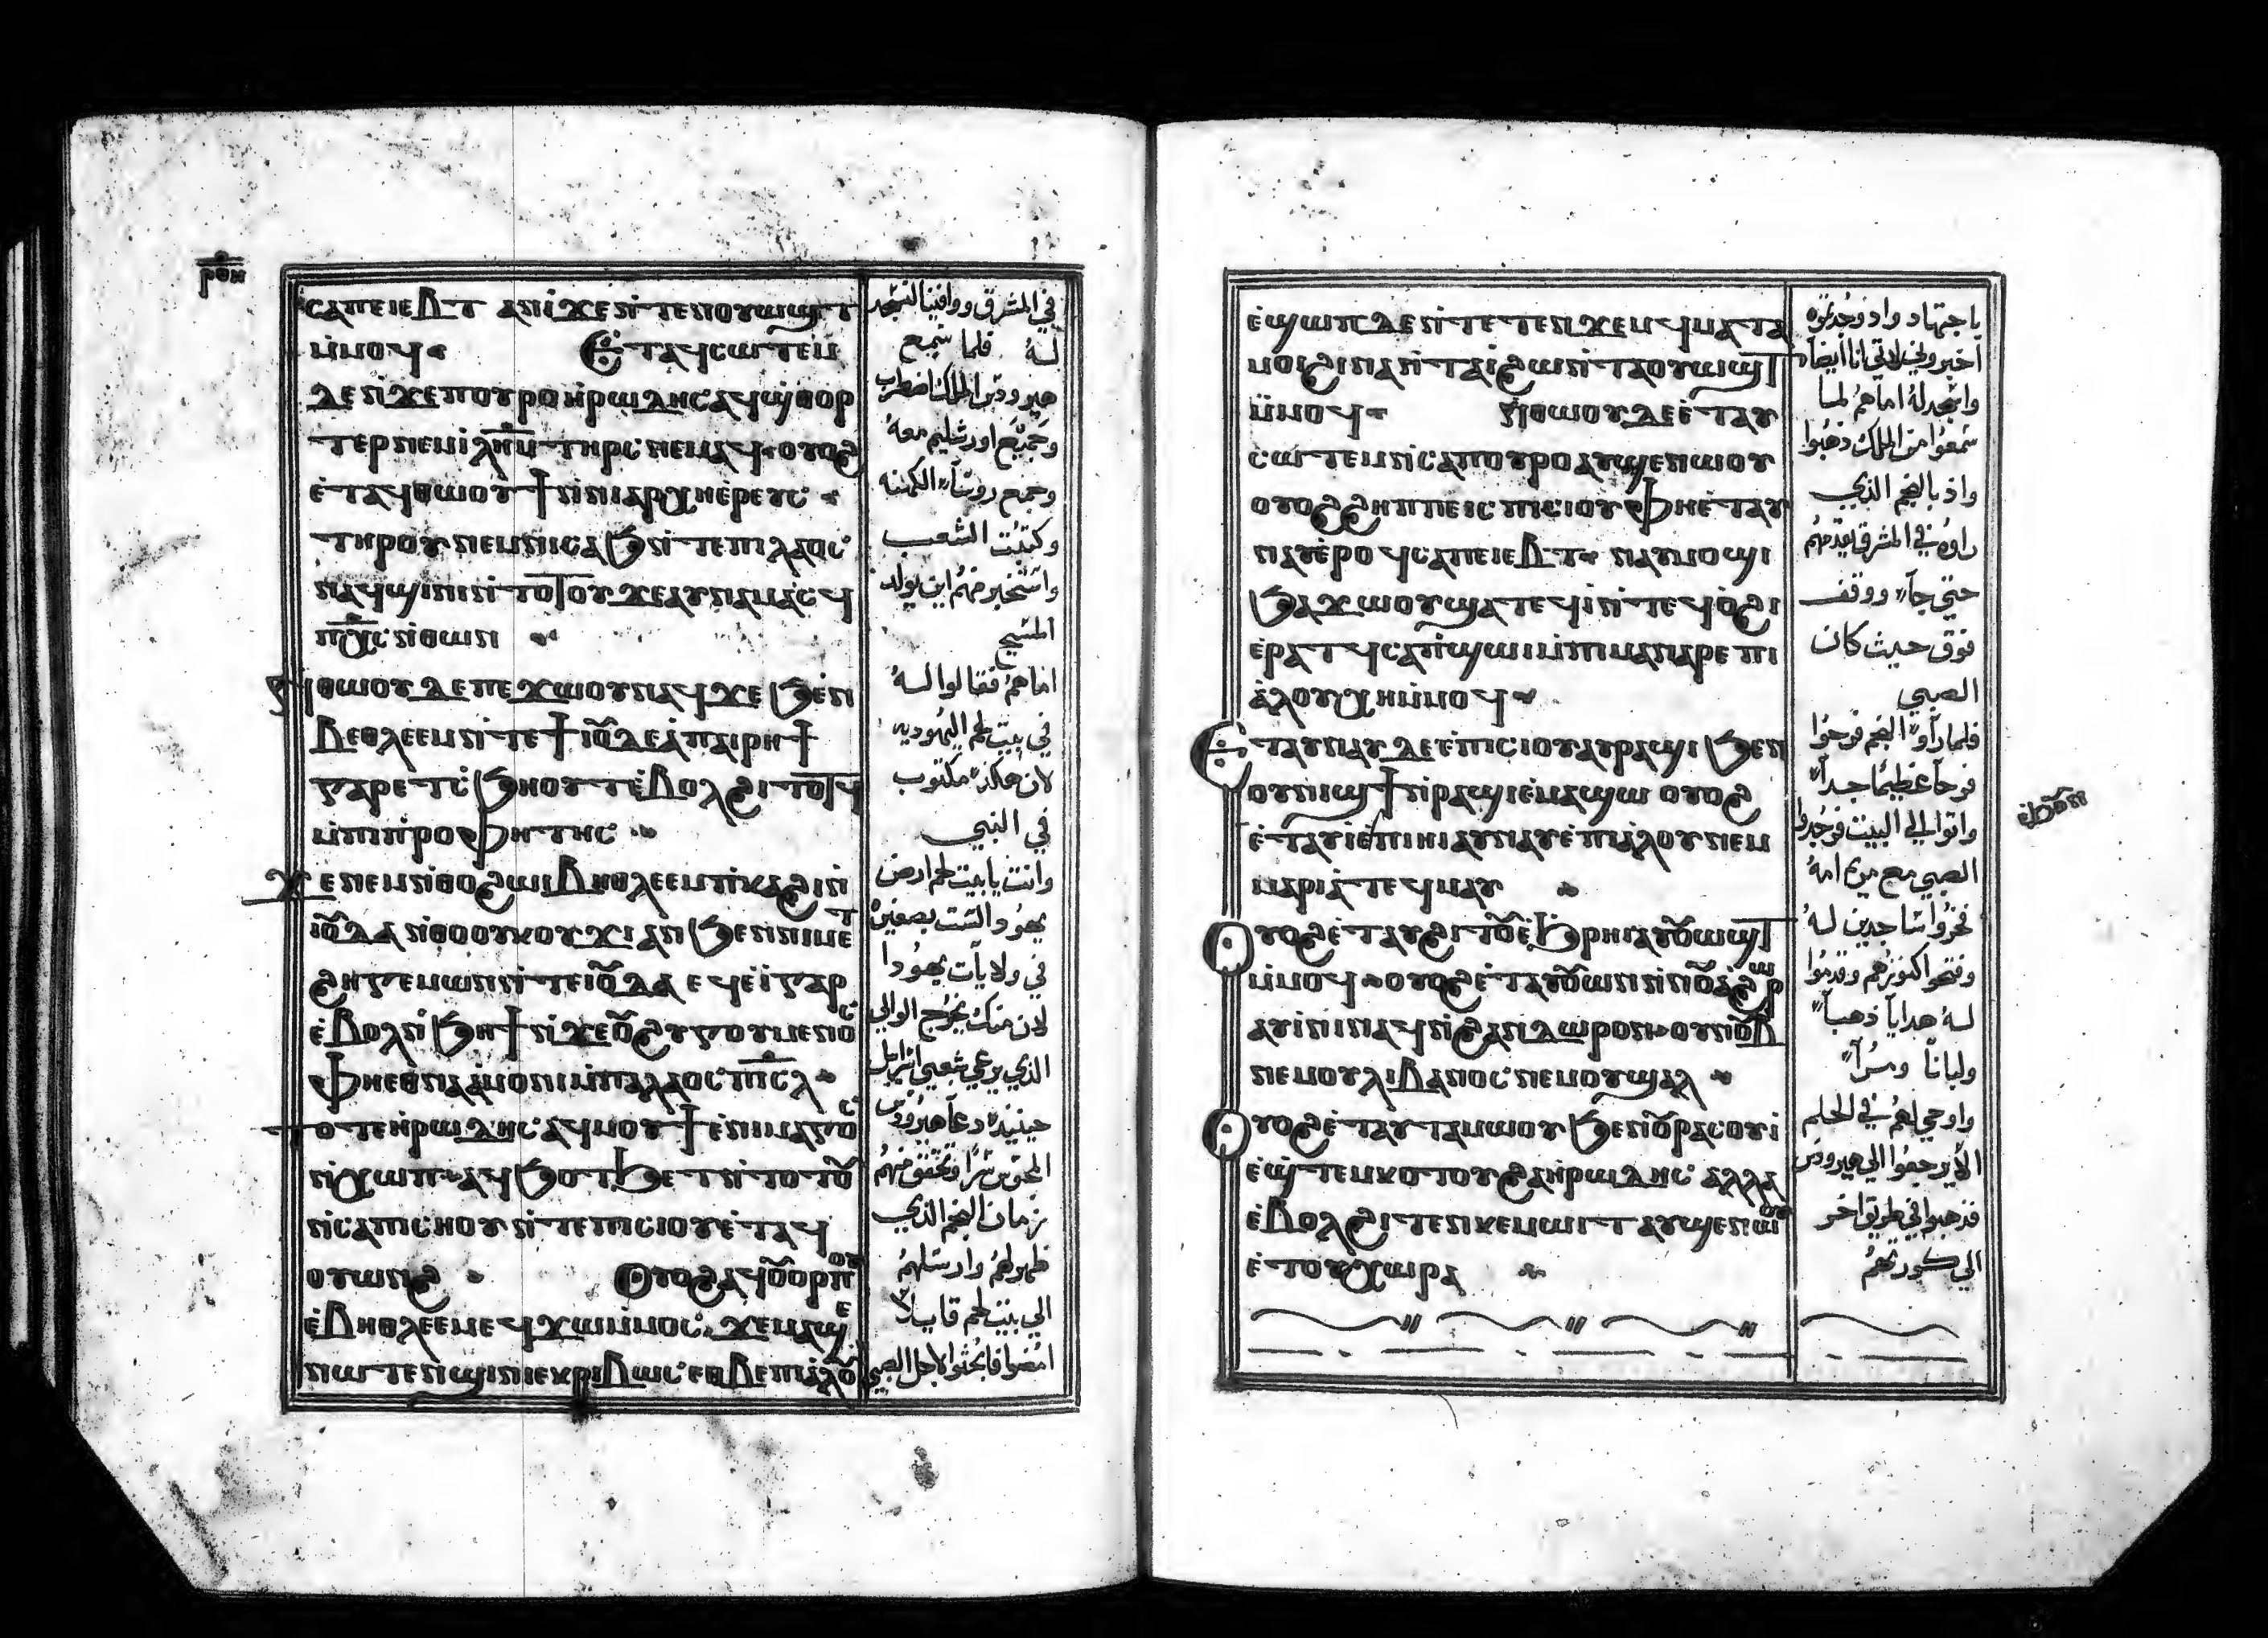 ⲣⲟⲏ
ⲥⲁⲡⲉⲓⲉⲃⲧ ⲁⲛⲓ̀ ϫⲉ ⲛ̀ⲧⲉⲛⲟⲩⲱϣⲧ
ⲙ̀ⲙⲟϥ Ⲉⲧⲁϥⲥⲱⲧⲉⲙ
ⲇⲉ ⲛ̀ϫⲉ ⲡⲟⲩⲣⲟ ⲏ̀ⲣⲱⲇⲏⲥ ⲁϥϣ̀ⲑⲟⲣ
ⲧⲉⲣ ⲛⲉⲙ ⲓ̀ⲗⲏ̅ⲙ̅ ⲧⲏⲣⲥ ⲛⲉⲙⲁϥ ⲟⲩⲟϩ
ⲉ̀ⲧⲁϥⲑⲱⲟⲩϯ ⲛ̀ⲛⲓⲁⲣⲭⲏⲉ̀ⲣⲉⲩⲥ
ⲧⲏⲣⲟⲩ ⲛⲉⲙ ⲛⲓⲥⲁϧ ⲛ̀ⲧⲉ ⲡⲓⲗⲁⲟⲥ
ⲛⲁϥϣⲓⲛⲓ ⲛ̀ⲧⲟⲧⲟⲩ ϫⲉ ⲁⲩⲛⲁⲙⲁⲥϥ
ⲡⲭ̅ⲥ̅ ⲛ̀ⲑⲱⲛ
Ⲛ̀ⲑⲱⲟⲩ ⲇⲉ ⲡⲉϫⲱⲟⲩ ⲛⲁϥ ϫⲉ ϧⲉⲛ
ⲃⲉⲑⲗⲉⲉⲙ ⲛ̀ⲧⲉ ϯⲓⲟⲩⲇⲉⲁ̀ ⲡⲁⲓⲣⲏϯ
ⲅⲁⲣ ⲉⲧⲥ̀ϧⲏⲟⲩⲧ ⲉ̀ⲃⲟⲗ ϩⲓⲧⲟⲧϥ
ⲙ̀ⲡⲓⲡ̀ⲣⲟⲫⲏⲧⲏⲥ
Ϫⲉ ⲛⲉⲙ ⲛ̀ⲑⲟ ϩⲱⲓ ⲃⲏⲑⲗⲉⲉⲙ ⲡ̀ⲕⲁϩⲓ ⲛ̀
ⲓⲟⲩⲇⲁ ⲛ̀ⲑⲟ ⲟⲩⲕⲟⲩϫⲓ ⲁⲛ ϧⲉⲛ ⲛⲓⲙⲉⲧ
ϩⲏⲅⲉⲙⲱⲛ ⲛ̀ⲧⲉ ⲓⲟⲩⲇⲁ ⲉϥⲉ̀ⲓ̀ ⲅⲁⲣ
ⲉ̀ⲃⲟⲗ ⲛ̀ϧⲏϯ ⲛ̀ϫⲉ ⲟⲩϩⲩⲅⲟⲩⲙⲉⲛⲟⲥ
ⲫⲏⲉⲑⲛⲁⲁ̀ⲙⲟⲛⲓ ⲙ̀ⲡⲁⲗⲁⲟⲥ ⲡⲓ̅ⲥ̅ⲗ̅
ⲧⲟⲧⲉ ⲏ̀ⲣⲱⲇⲏⲥ ⲁϥⲙⲟⲩϯ ⲉ̀ⲛⲓⲙⲁⲅⲟⲥ
ⲛ̀ⲭⲱⲡ ⲁϥϧⲟⲧϧⲉⲧ ⲛ̀ⲧⲟⲧⲟⲩ
ⲛ̀ⲥⲁ ⲡⲓⲥⲏⲟⲩ ⲛ̀ⲧⲉ ⲡⲓⲥⲓⲟⲩ ⲉ̀ⲧⲁϥ
ⲟⲩⲱⲛϩ Ⲟⲩⲟϩ ⲁϥⲟⲩⲟⲣⲡⲟⲩ
ⲉ̀ⲃⲏⲑⲗⲉⲉⲙ ⲉϥϫⲱ ⲙ̀ⲙⲟⲥ ϫⲉ ⲙⲁϣⲉ
ⲛⲱⲧⲉⲛ ϣⲓⲛⲓ ⲉⲕⲣⲓⲃⲱⲥ ⲉⲑⲃⲉ ⲡⲓⲁ̀ⲗⲟⲩ
في المشرق ووافينا لنسجد
له فلما سمع
هيرودس الملك اضطرب
وجميع اورشليم معه
وجمع روسآء الكهنة
وكتبت الشعب
واستخبر منهم اين يولد
المسيح
اما هم فقالوا له
في بيت لحم اليهوديه
لان هكذا مكتوب
في النبي
وانت يا بيت لحم ارض
يهودا لست بصغيره
في ولايات يهودا
لان منك يخرج الوالي
الذي يرعي شعبي اسراييل
حينيذ دعا هيرودس
المجوس سرا وتحقق منهم
زمان النجم الذي
ظهر لهم وارسلهم
الي بيت لحم قايلا
امضوا فابحثوا لاجل الصبي
ⲉ̀ϣⲱⲡ ⲇⲉ ⲛ̀ⲧⲉⲧⲉⲛϫⲉⲙϥ ⲙⲁⲧⲁ
ⲙⲟⲓ ϩⲓⲛⲁ ⲛ̀ⲧⲁⲓ̀ ϩⲱ ⲛ̀ⲧⲁⲟⲩⲱϣⲧ
ⲙ̀ⲙⲟϥ Ⲛ̀ⲑⲱⲟⲩ ⲇⲉ ⲉ̀ⲧⲁⲩ
ⲥⲱⲧⲉⲙ ⲛ̀ⲥⲁ ⲡⲟⲩⲣⲟ ⲁⲩϣⲉⲛⲱⲟⲩ
ⲟⲩⲟϩ ϩⲏⲡⲡⲉ ⲓⲥ ⲡⲓⲥⲓⲟⲩ ⲫⲏⲉ̀ⲧⲁⲩ
ⲛⲁⲩ ⲉ̀ⲣⲟϥ ⲥⲁⲡⲉⲓⲉⲃⲧ ⲛⲁϥⲙⲟϣⲓ
ϧⲁϫⲱⲟⲩ ϣⲁⲧⲉϥⲓ̀ ⲛ̀ⲧⲉϥⲟ̀ϩⲓ
ⲉ̀ⲣⲁⲧϥ ⲥⲁⲡ̀ϣⲱⲓ ⲙ̀ⲡⲓⲙⲁ ⲛⲁⲣⲉ ⲡⲓ
ⲁ̀ⲗⲟⲩ ⲭⲏ ⲙ̀ⲙⲟϥ
Ⲉⲧⲁⲩⲛⲁⲩ ⲇⲉ ⲉ̀ⲡⲓⲥⲓⲟⲩ ⲁⲩⲣⲁϣⲓ ϧⲉⲛ
ⲟⲩⲛⲓϣϯ ⲛ̀ⲣⲁϣⲓ ⲉ̀ⲙⲁϣⲱ ⲟⲩⲟϩ
ⲉ̀ⲧⲁⲩⲓ̀ ⲉ̀ⲡⲓⲏⲓ ⲁⲩⲛⲁⲩ ⲉ̀ⲡⲓⲁ̀ⲗⲟⲩ ⲛⲉⲙ
ⲙⲁⲣⲓⲁ̀ ⲧⲉϥⲙⲁⲩ
Ⲟⲩⲟϩ ⲉ̀ⲧⲁⲩϩⲓⲧⲟⲩ ⲉ̀ϧⲣⲏⲓ ⲁⲩⲟⲩⲱϣⲧ
ⲙ̀ⲙⲟϥ ⲟⲩⲟϩ ⲉ̀ⲧⲁⲩⲟⲩⲱⲛ ⲛ̀ⲛⲟⲩⲁ̀ϩⲱⲣ
ⲁⲩⲓ̀ⲛⲓ ⲛⲁϥ ⲛ̀ϩⲁⲛⲇⲱⲣⲟⲛ ⲟⲩⲛⲟⲩⲃ
ⲛⲉⲙ ⲟⲩⲗⲓⲃⲁⲛⲟⲥ ⲛⲉⲙ ⲟⲩϣⲁⲗ
Ⲟⲩⲟϩ ⲉ̀ⲧⲁⲩⲧⲁⲙⲱⲟⲩ ϧⲉⲛ ⲟⲩⲣⲁⲥⲟⲩⲓ̀
ⲉ̀ϣ̀ⲧⲉⲙⲕⲟⲧⲟⲩ ϩⲁ ⲏ̀ⲣⲱⲇⲏⲥ ⲁⲗⲗⲁ
ⲉ̀ⲃⲟⲗ ϩⲓⲧⲉⲛ ⲕⲉⲙⲱⲓⲧ ⲁⲩϣⲉⲛⲱⲟⲩ
ⲉ̀ⲧⲟⲩⲭⲱⲣⲁ
باجتهاد واذ وجدتموه
اخبروني لاتي انا ايضا
واسجد له اما هم لما
سمعوا من الملك ذهبوا
واذ بالنجم الذي
راوه في المشرق يقدمهم
حتي جآء ووقف
فوق حيث كان
الصبي
فلما رأوا النجم فرحوا
فرحا عظيما جدا
واتوا الي البيت فوجدوا
الصبي مع مريم امه
فخروا ساجدين له
وفتحوا كنوزهم وقدموا
له هدايا ذهبا
ولبانا ومرا
واوحي لهم في الحلم
الا يرجعوا الي هيرودس
فذهبوا في طريق اخر
الي كورتهم